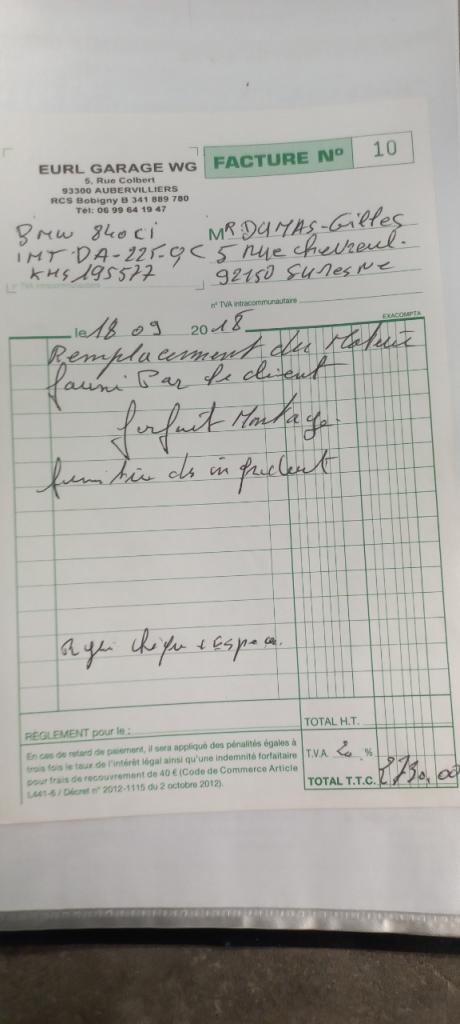 FACTURE Nº 10
EURL GARAGE WG
5, Rue Colbert
93300 AUBERVILLIERS
RCS Bobigny B 341 889 780
Tél: 06 99 64 19 47
BMW 840 Ci
IMT DA-225-9C
KMS 195577
n° TVA intracommunautaire
Mr DUMAS-Gilles
5 rue chevreul.
92150 SuresNe
n° TVA intracommunautaire
EXACOMPTA
le 18 09 2018
Remplacement du Moteur
fourni Par le client
forfait Montage.
fourniture ds ingredient
Regu cheque + espece.
RÈGLEMENT pour le :
En cas de retard de paiement, il sera appliqué des pénalités égales à
trois fois le taux de l'intérêt légal ainsi qu'une indemnité forfaitaire
pour frais de recouvrement de 40 € (Code de Commerce Article
L441-6 / Décret n° 2012-1115 du 2 octobre 2012).
TOTAL H.T.
T.V.A. 20 %
TOTAL T.T.C. 2730,00